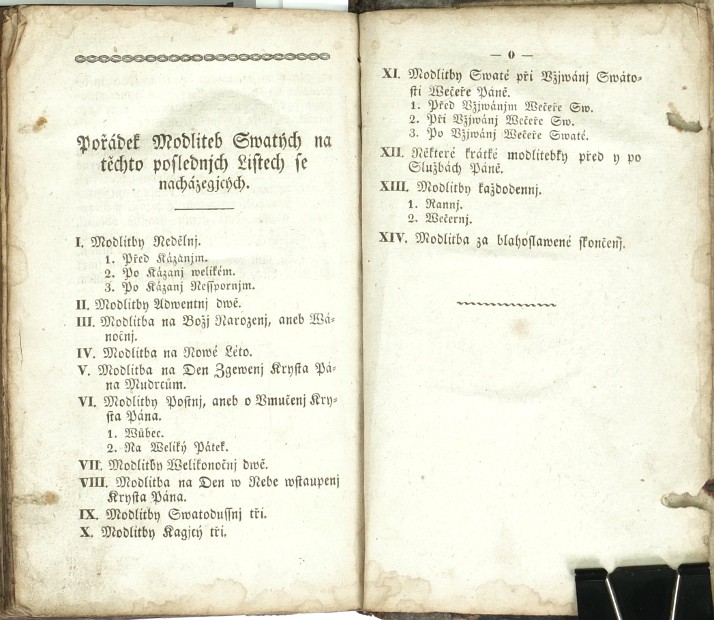 Pořádek Modliteb Swatých na
těchto poslednjch Listech se
nacházegjcých.
I. Modlitby Nedělnj.
1. Před Kázanjm.
2. Po Kázanj welikém.
3. Po Kázanj Nessporným.
II. Modlitby Adwentnj dwě.
III. Modlitba na Božj Narozenj, aneb Wá-
nočnj.
IV. Modlitba na Nowé Léto.
V. Modlitba na Den Zgewenj Krysta Pá-
na Mudrcům.
VI. Modlitby Postnj, aneb o Vmučenj Kry-
sta Pána.
1. Wůbec.
2. Na Weliký Pátek.
VII. Modlitby Welikonočnj dwě.
VIII. Modlitba na Den w Nebe wstaupenj
Krysta Pána.
IX. Modlitby Swatodussnj tři.
X. Modlitby Kagjcý tři.
— 0 —
XI. Modlitby Swaté při Vžjwánj Swáto-
sti Wečeře Páně.
1. Před Vžjwánjm Wečeře Sw.
2. Při Vžjwánj Wečeře Sw.
3. Po Vžjwánj Wečeře Swaté.
XII. Některé krátké modlitebky před y po
Službách Páně.
XIII. Modlitby každodennj.
1. Rannj.
2. Wečernj.
XIV. Modlitba za blahoslawené skončenj.